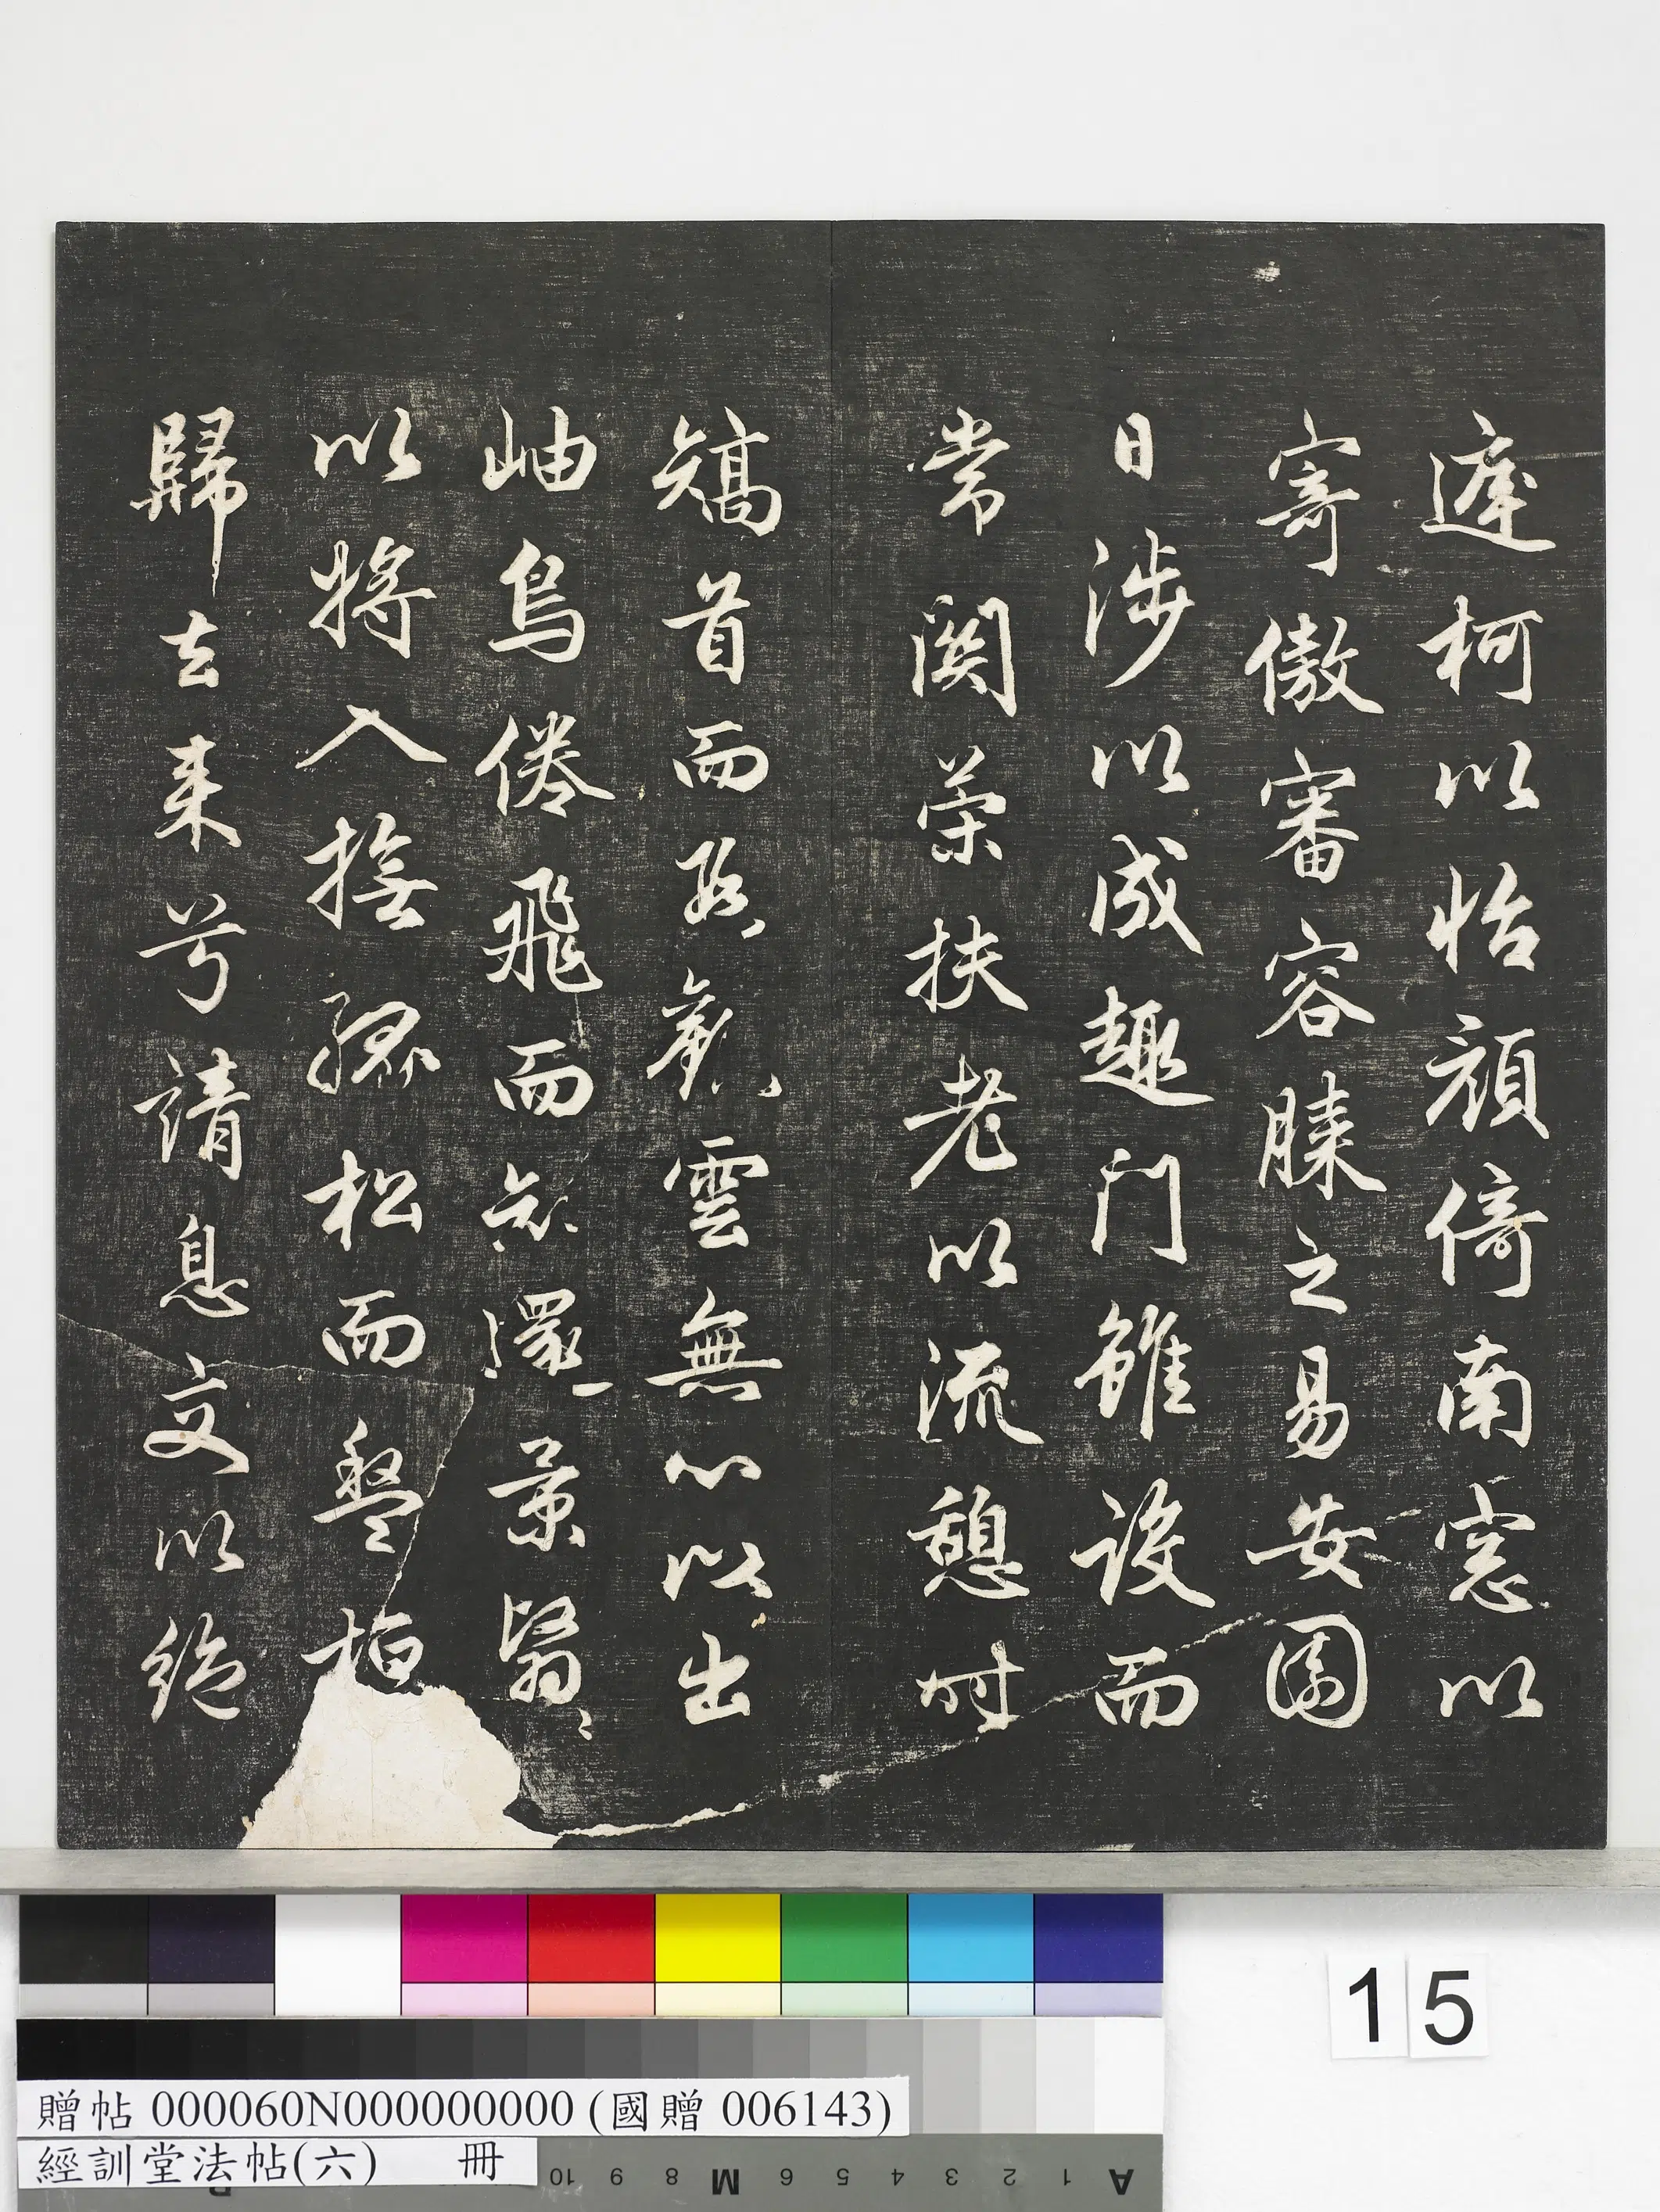 遲柯以怡顔倚南窓以
寄傲審容膝之易安園
日涉以成趣门雖设而
常関荣扶老以流憩时
矯首而遐觀雲無心以出
岫鳥倦飛而知還景翳〻
以將入撫孤松而盤桓
歸去来兮請息交以絶
15
贈帖 000060N000000000 (國贈 006143)
經訓堂法帖(六) 冊
10 9 8 M 6 5 4 3 2 1 A